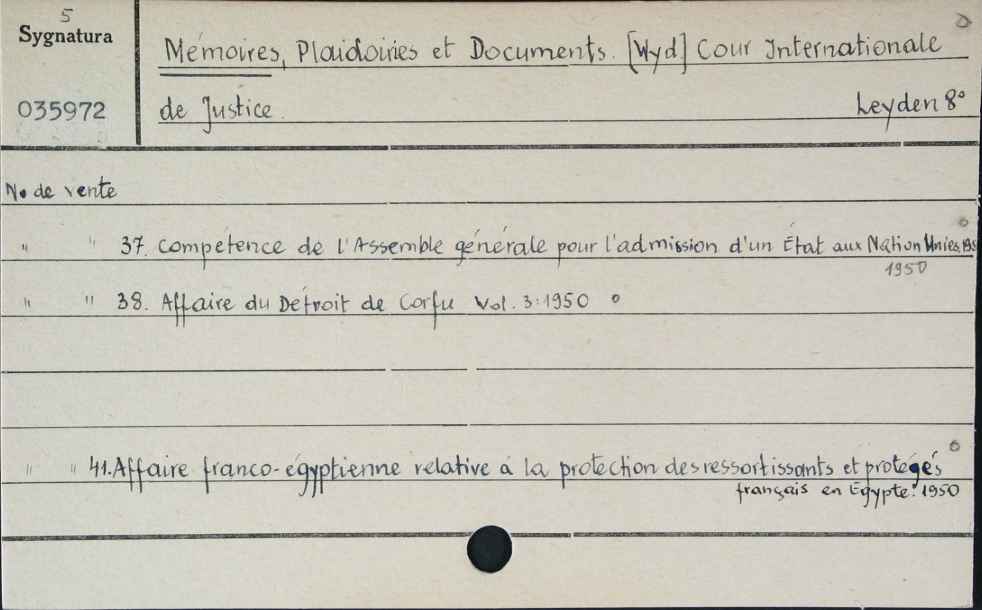 5
Sygnatura
035972
Mémoires, Plaidoiries et Documents. [Wyd] Cour Internationale
de Justice. Leyden 8°
No de vente
" " 37. Compétence de l'Assemble générale pour l'admission d'un État aux Nation Unies
1950
" " 38. Affaire du Détroit de Corfu Vol. 3:1950 o
" " 41. Affaire franco-égyptienne relative á la protection des ressortissants et protégés
français en Egypte. 1950